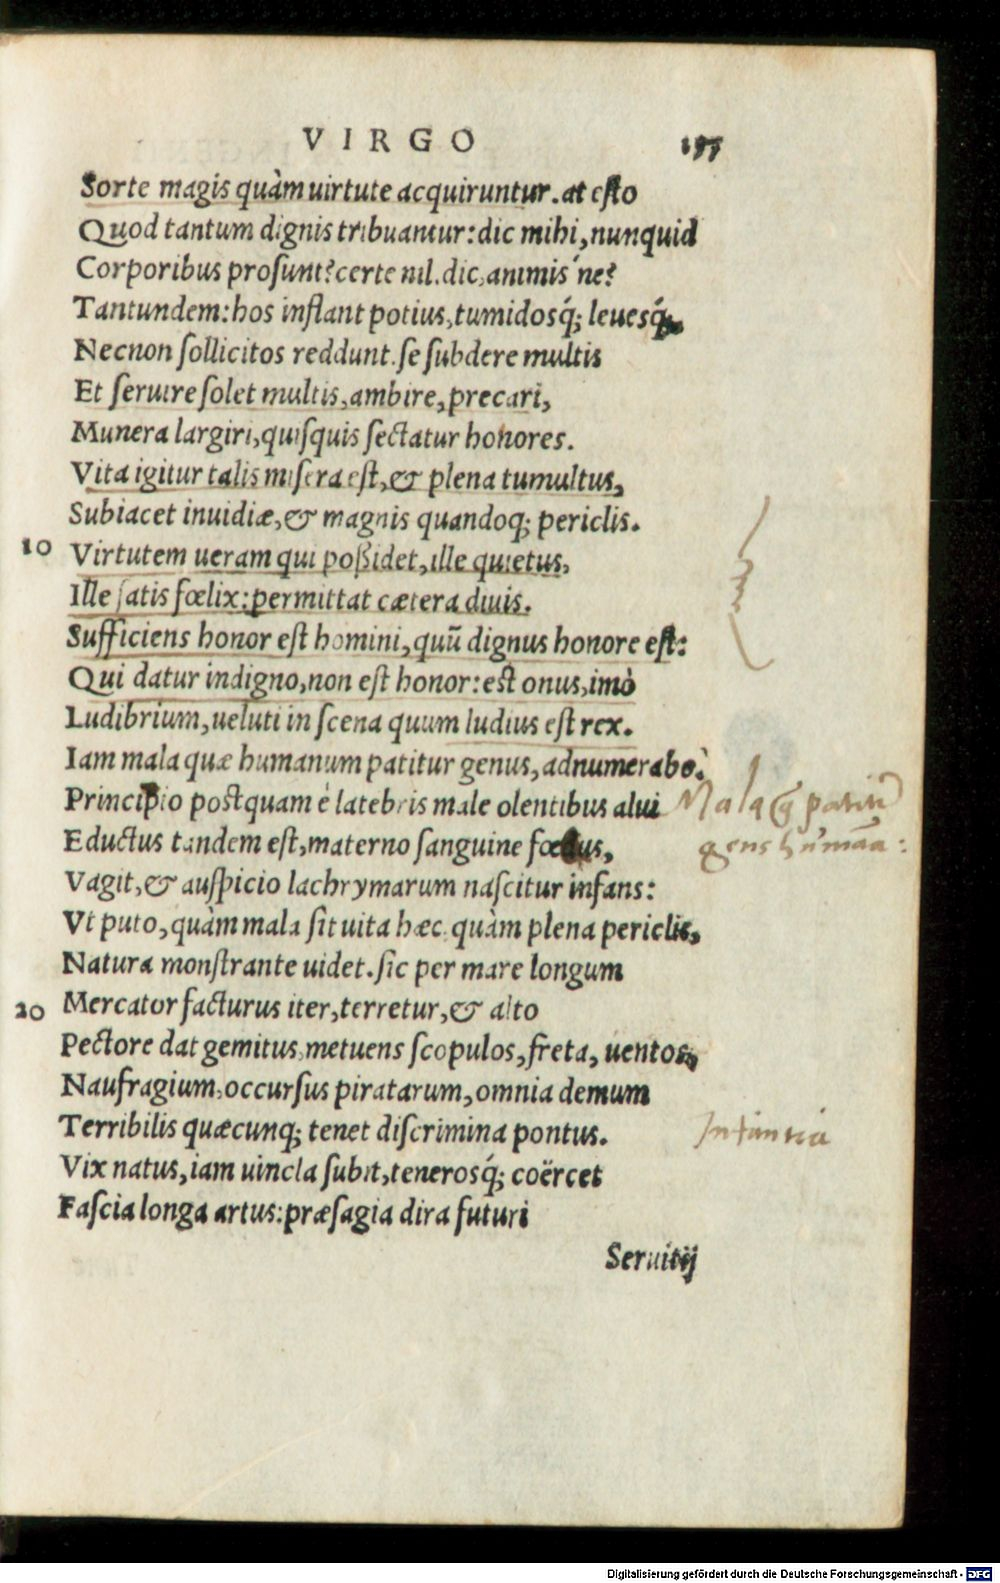 VIRGO 197
Sorte magis quàm uirtute acquiruntur. at esto
Quod tantum dignis tribuantur: dic mihi, nunquid
Corporibus prosunt? certe nil. dic, animis ́ne?
Tantundem: hos inflant potius, tumidosq́; leuesq́;
Necnon sollicitos reddunt. se subdere multis
Et seruire solet multis, ambire, precari,
Munera largiri, quisquis sectatur honores.
Vita igitur talis misera est, & plena tumultus,
Subiacet inuidiæ, & magnis quandoq; periclis.
10 Virtutem ueram qui poßidet, ille quietus,
Ille satis fœlix: permittat cætera diuis.
Sufficiens honor est homini, quū dignus honore est:
Qui datur indigno, non est honor: est onus, imò
Ludibrium, ueluti in scena quum ludius est rex.
Iam mala quæ humanum patitur genus, adnumerabo.
Principio postquam è latebris male olentibus alui
Mala q̃ patitur
Eductus tandem est, materno sanguine fœdus,
gens humana:
Vagit, & auspicio lachrymarum nascitur infans:
Vt puto, quàm mala sit uita hæc, quàm plena periclis,
Natura monstrante uidet. sic per mare longum
20 Mercator facturus iter, terretur, & alto
Pectore dat gemitus, metuens scopulos, freta, uentos,
Naufragium, occursus piratarum, omnia demum
Terribilis quæcunq; tenet discrimina pontus.
Infantia
Vix natus, iam uincla subit, tenerosq́; coërcet
Fascia longa artus: præsagia dira futuri
Seruitij
Digitalisierung gefördert durch die Deutsche Forschungsgemeinschaft - DFG